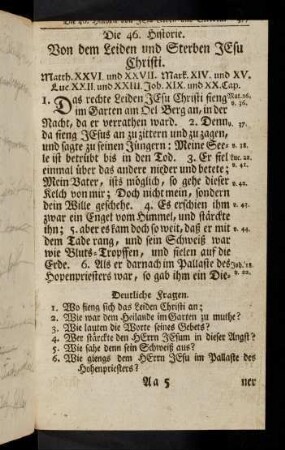 Die 46. Historie.
Von dem Leiden und Sterben JEsu
Christi.
Matth. XXVI. und XXVII. Mark. XIV. und XV.
Luc XXII. und XXIII. Joh. XIX. und XX. Cap.
1. Das rechte Leiden JEsu Christi fieng
im Garten am Oel Berg an, in der
Nacht, da er verrathen ward. 2. Denn
da fieng JEsus an zu zittern und zu zagen,
und sagte zu seinen Jüngern: Meine See-
le ist betrübt bis in den Tod. 3. Er fiel
einmal über das andere nieder und betete;
Mein Vater, ists möglich, so gehe dieser
Kelch von mir; Doch nicht mein, sondern
dein Wille geschehe. 4. Es erschien ihm
zwar ein Engel vom Himmel, und stärckte
ihn; 5. aber es kam doch so weit, daß er mit
dem Tade rang, und sein Schweiß war
wie Bluts-Tropffen, und fielen auf die
Erde. 6. Als er darnach im Pallaste des
Hohenpriesters war, so gab ihm ein Die-
Mat. 26.
v. 36.
v. 37.
v. 38.
Luc. 22.
v. 41.
v. 42.
v. 43.
v. 44.
Joh. 18.
v. 22.
Deutliche Fragen.
1. Wo fieng sich das Leiden Christi an;
2. Wie war dem Heilande im Garten zu muthe?
3. Wie lauten die Worte seines Gebets?
4. Wer stärckte den HErrn JEsum in dieser Angst?
5. Wie sahe denn sein Schweiß aus?
6. Wie giengs dem HErrn JEsu im Pallaste des
Hohenpriesters?
Aa 5 ner